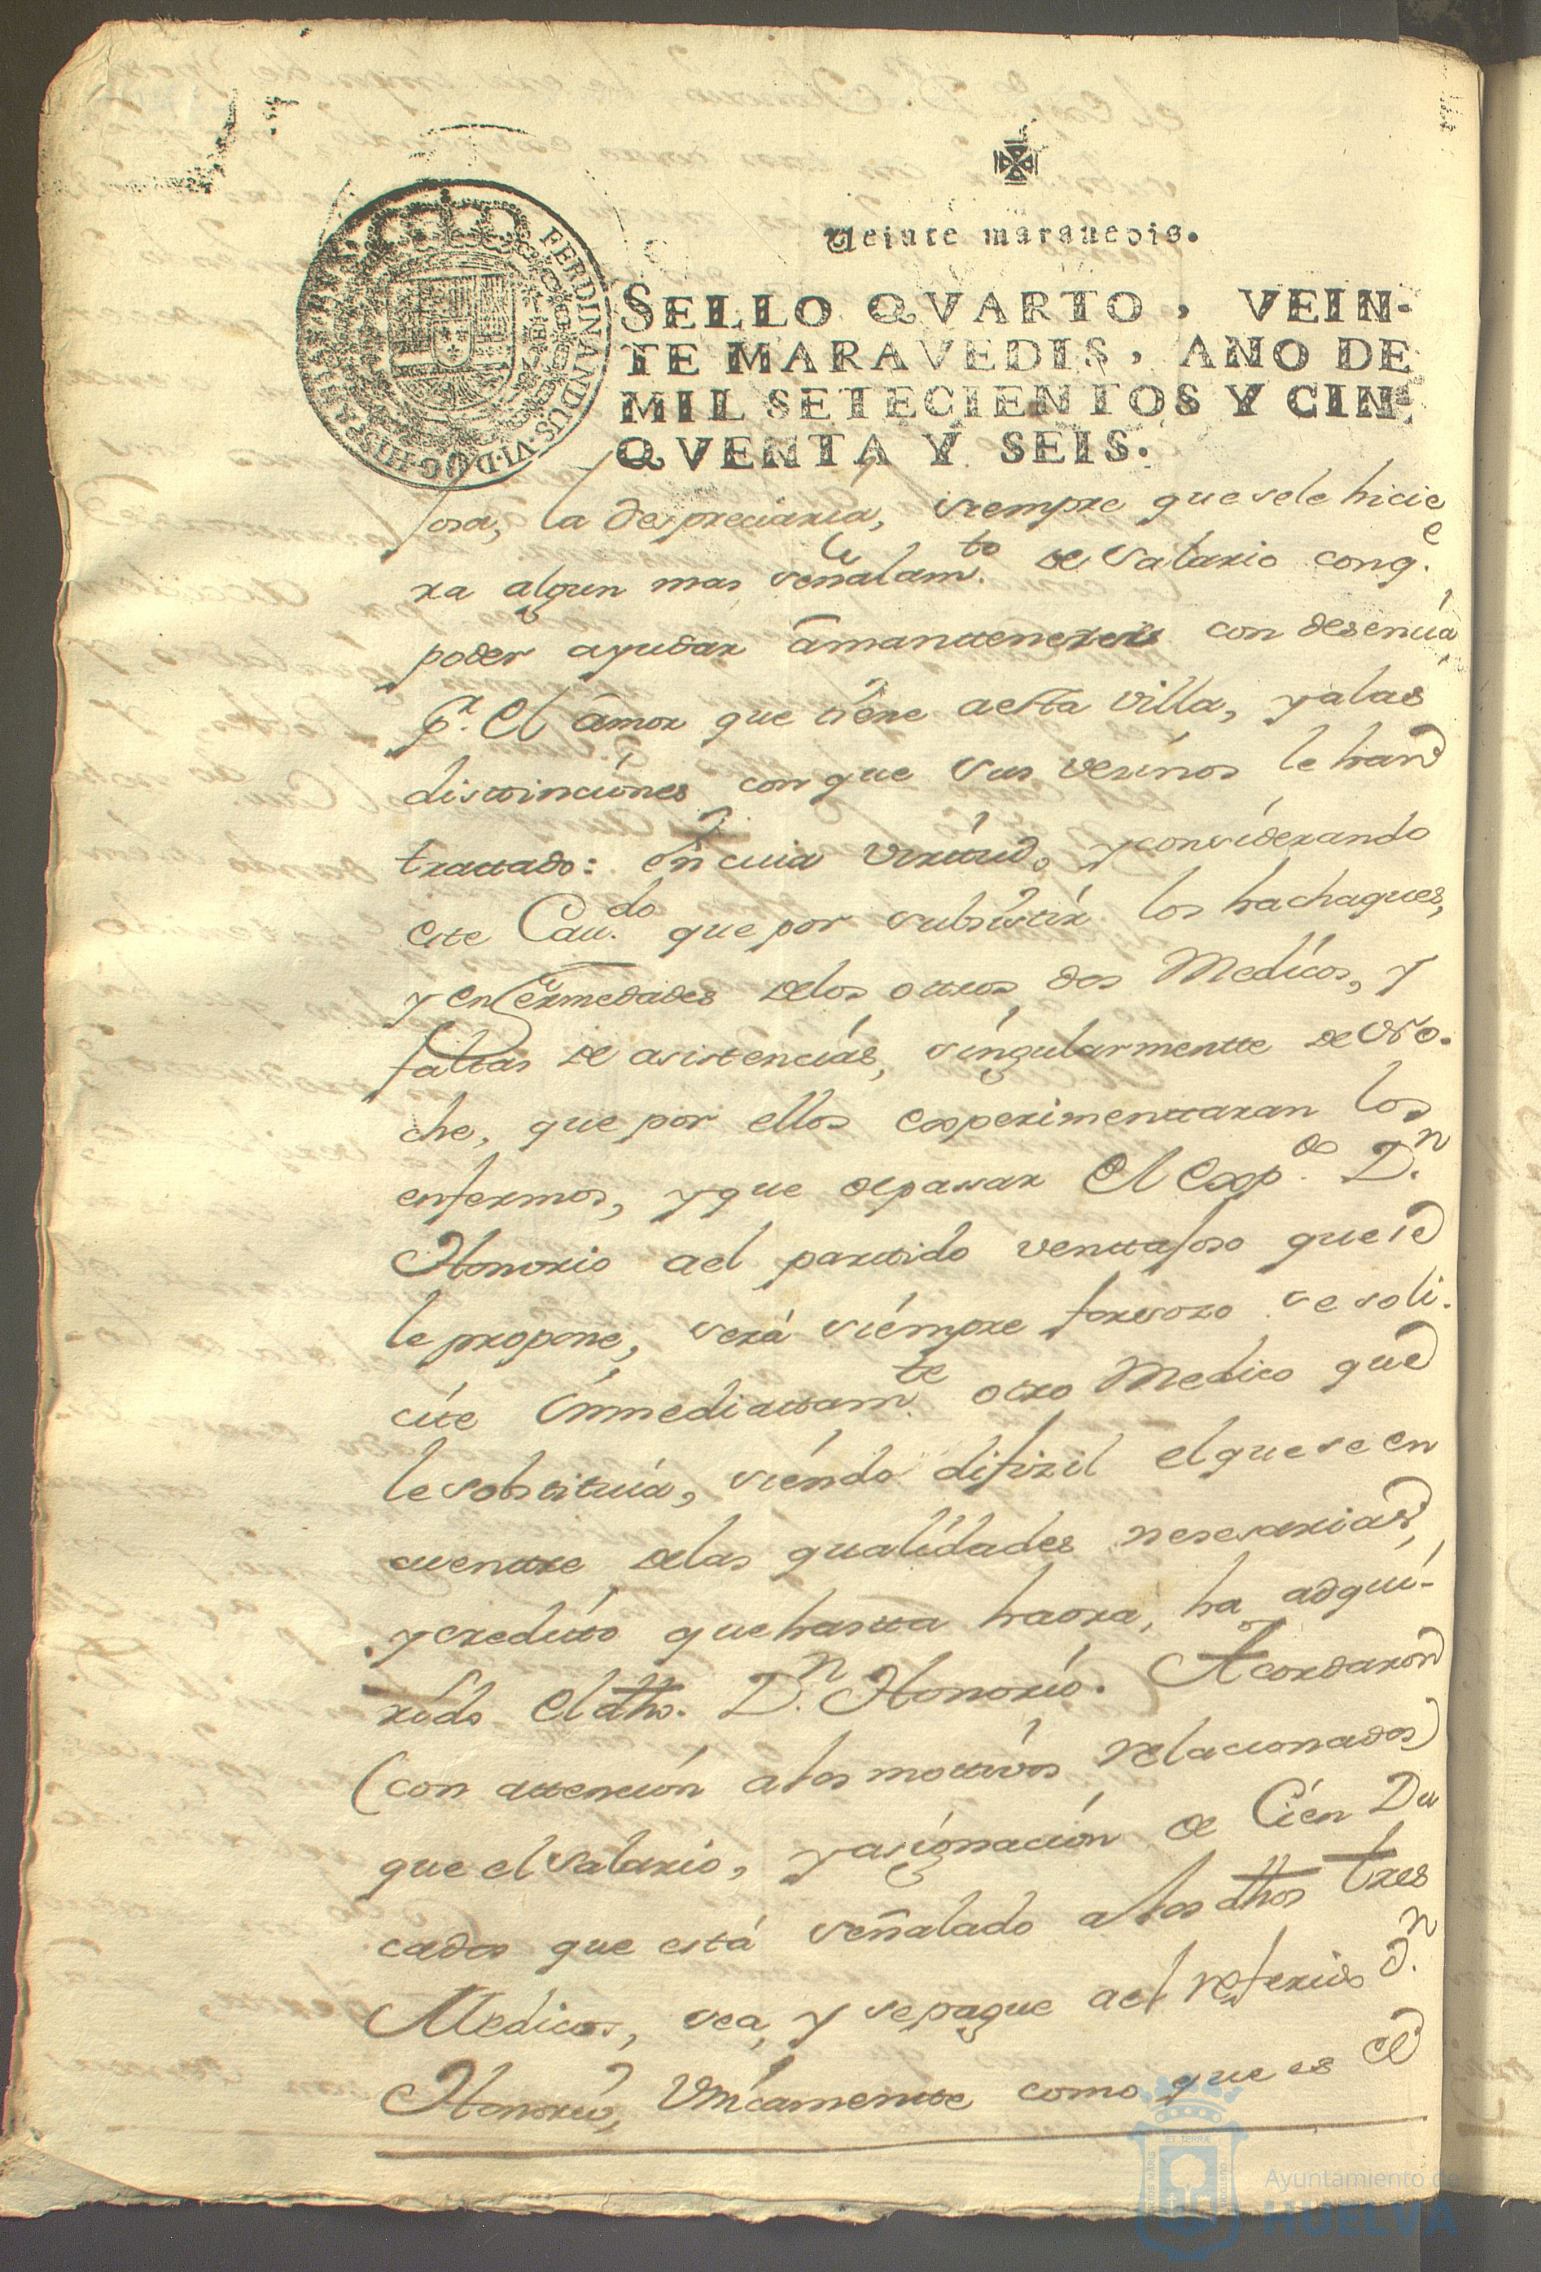 Veinte maravedis.
FERDINANDUS·VI·D·G·HISPANIAR·REX
SELLO QVARTO, VEIN-
TE MARAVEDIS, AÑO DE
MIL SETECIENTOS Y CIN-
QVENTA Y SEIS.
josa, la despreciaria, siempre que sele hicie
ra algun mas señalam.to de Salario conq.e
poder ayudar âmanttenerse con desencia
p.r El âmor que tiêne aesta villa, yalas
distinciónes con que sus vesinos le han
trattado: en cuia virttud, yconsiderando
este Cau.do que por subsistir los hachaques,
y enfermedades delos ottros dos Medicos, y
faltas de asistencias, singularmentte de No-
che, que por ellos experimenttaran los
enfermos, yque depasar El Exp.do D.n
Honorio ael parttido venttajoso que
le propone, será siémpre forsozo se soli-
cite inmediattam.te otro Medico que
le sobstituia, siéndo difizil elque se en
cuenttre delas qualidades nesesarias,
ycreditto quehastta haora, ha adqui-
rido El dho. D.n Honorio. Acordaron
(con attención alos mottivos relacionados)
que el Salario, yasignación de Cién Du
cados que está señalado alos dhos tres
Medicos, sea, y sepague ael referido D.n
Honorio, Unicamentte como que es el
Ayuntamiento de
HUELVA